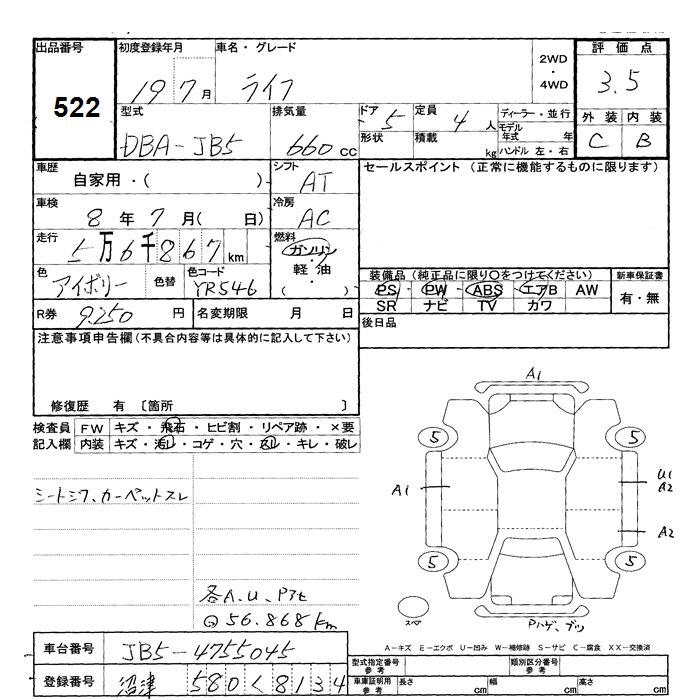 出品番号 初度登録年月 車名・グレード 2WD・4WD 評価点
522 19 7月 ライフ 3.5
型式 排気量 ドア 5 定員 4人 ディーラー・並行 外装 内装
DBA-JB5 660cc 形状 積載 kg モデル年式 年 ハンドル 左・右 C B
車歴 シフト セールスポイント (正常に機能するものに限ります)
自家用・( ) AT
車検 冷房
8年7月( 日) AC
走行 燃料
5万6千867km ガソリン・軽油・( )
色 色替 色コード 装備品 (純正品に限り○をつけてください) 新車保証書
アイボリー YR546 PS・PW・ABS・エアB AW 有・無
SR ナビ TV カワ
R券 9.250円 名変期限 月 日 後日品
注意事項申告欄(不具合内容等は具体的に記入して下さい)
修復歴 有 〔箇所 〕
検査員 FW キズ・飛石・ヒビ割・リペア跡・×要
記入欄 内装 キズ・汚レ・コゲ・穴・スレ・キレ・破レ
シートシワ、カーペットスレ
各A.U.Pアセ
@56.868km
A1
5 5
A1 U1
A2
A2
5 5
スペア Pハゲ、ブツ
A-キズ E-エクボ U-凹み W-補修跡 S-サビ C-腐食 XX-交換済
車台番号 JB5-4755045
型式指定番号 参考 類別区分番号 参考
登録番号 沼津 580く8134
車庫証明用 参考 長さ cm 幅 cm 高さ cm